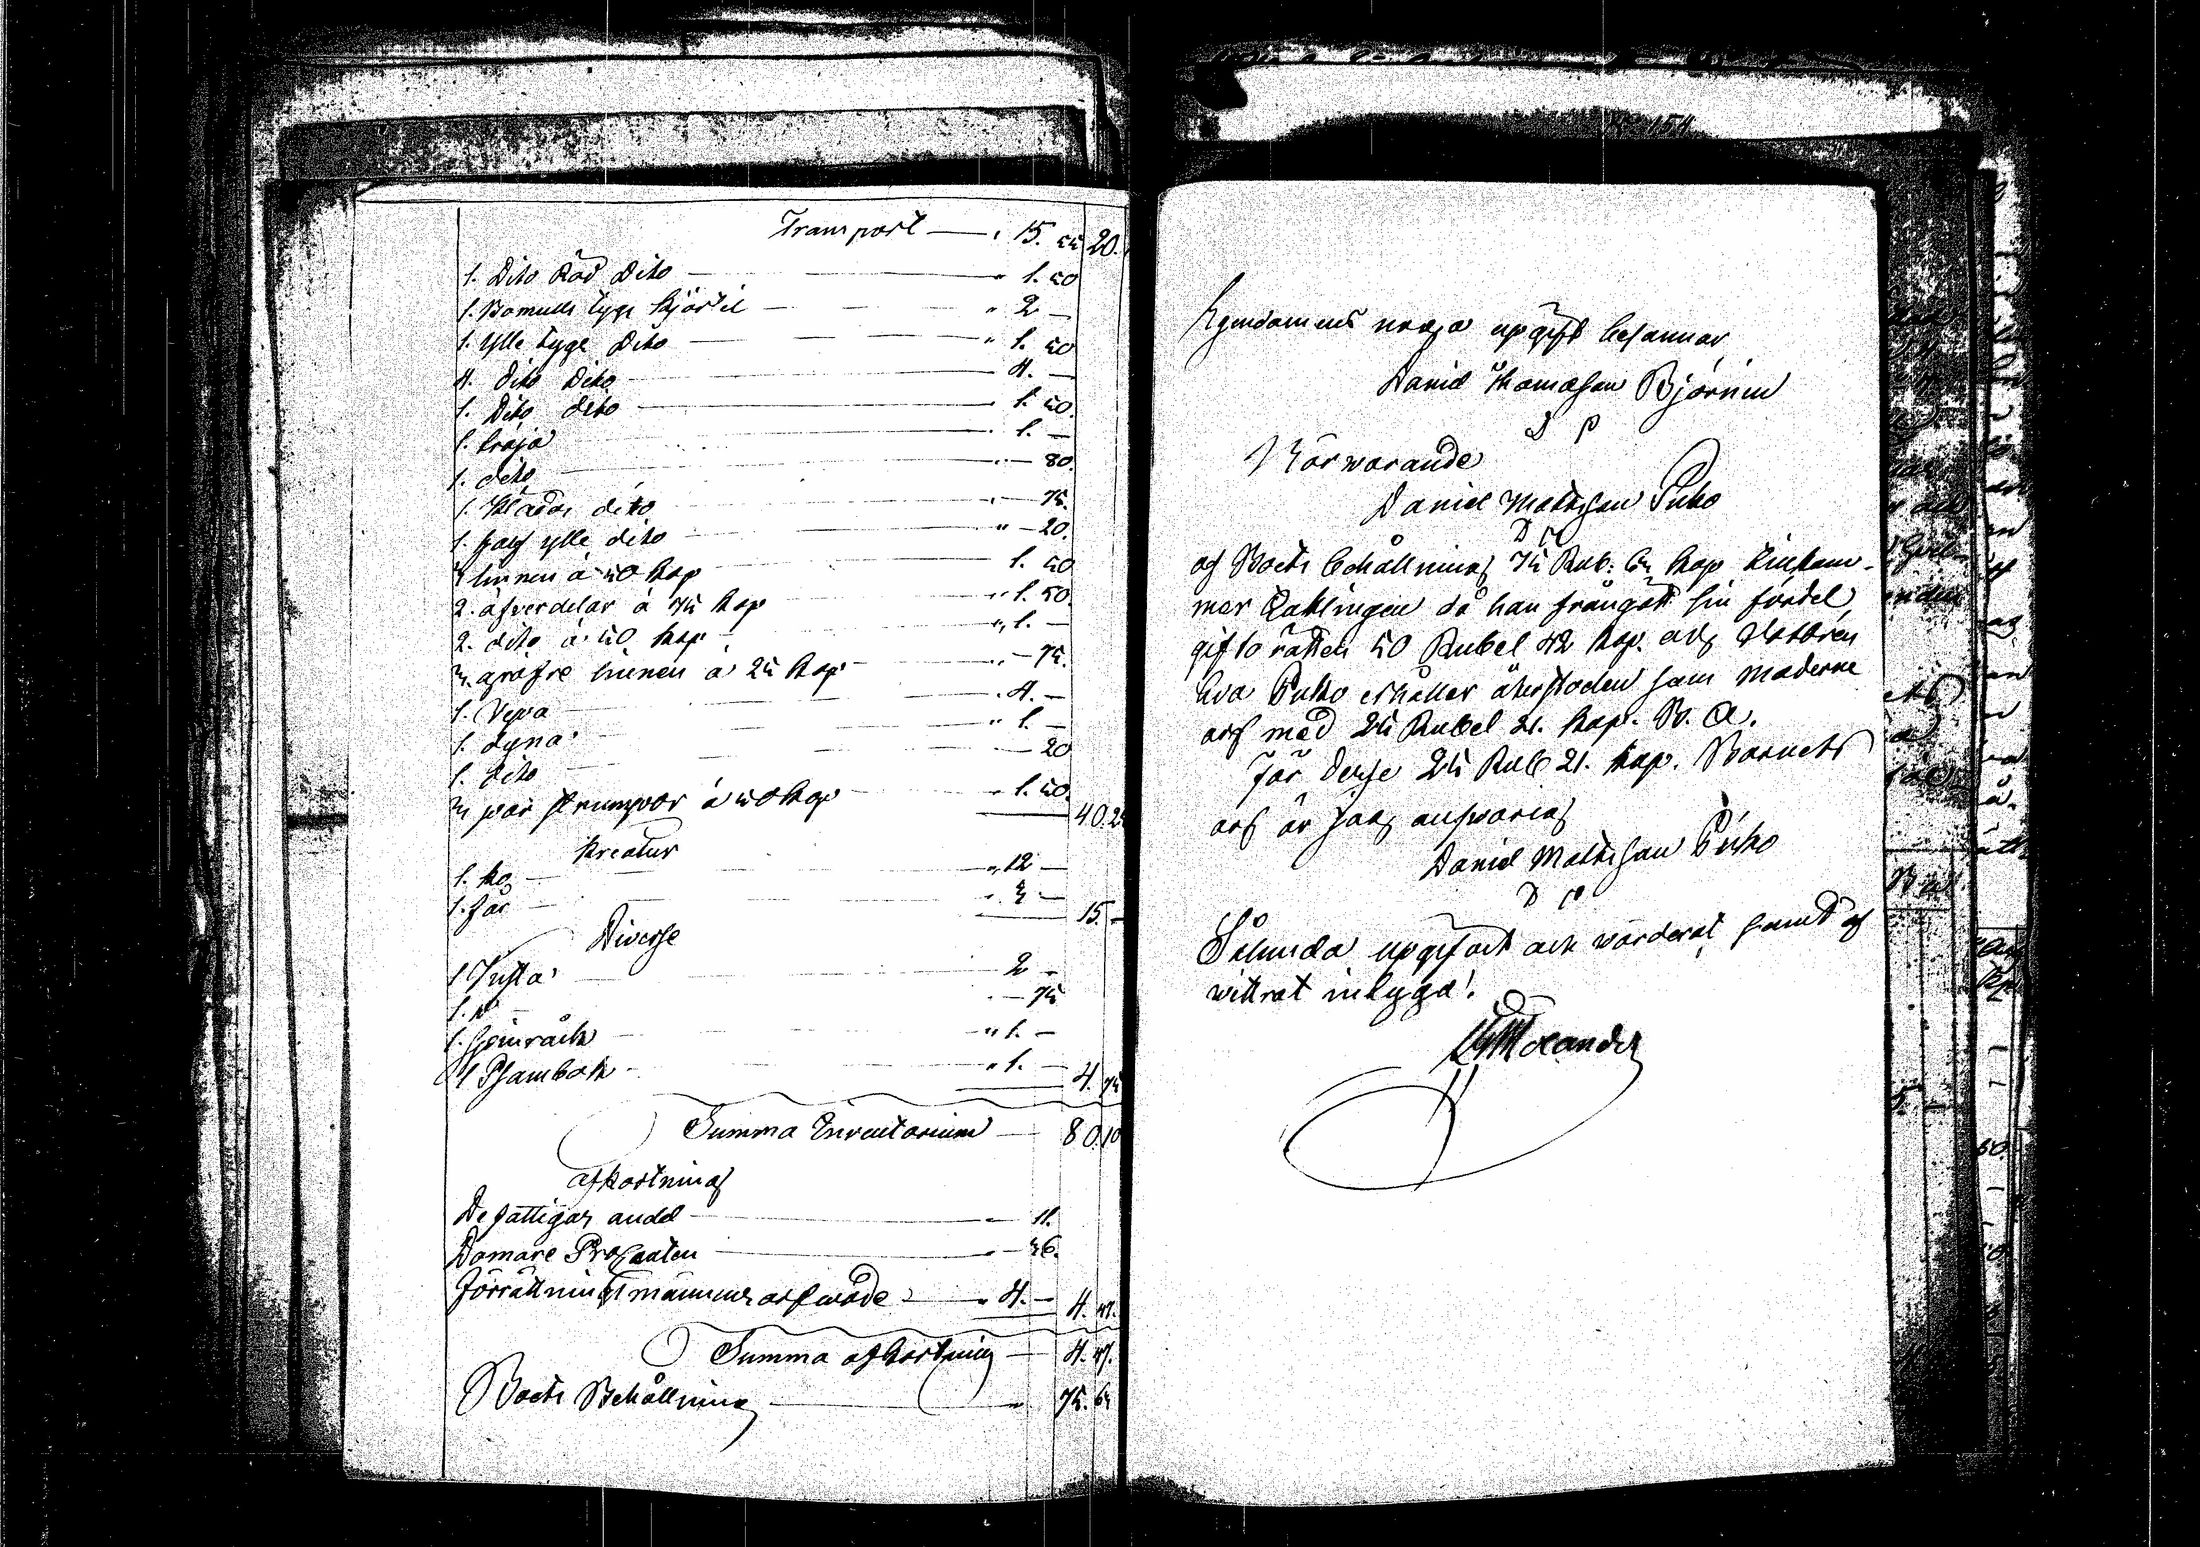 No 154
Transport — 15. 55 20.
1. Dito Röd Dito — 1. 50
1. Bomulls tygs Kjortel — 2 —
1. Ylle tygs Dito — 1. 50
4. dito Dito — 4. —
1. Dito dito — 1. 50.
1. tröja — 1. —
1. dito — 80.
1. Klädes dito — 75.
1. half ylle dito — 20.
3 linnen à 50 kop — 1. 50
2. öfverdelar à 75 kop — 1. 50.
2. dito à 50 kop — 1. —
3. gröfre linnen à 25 kop — 75.
1. Vepa — 4. —
1. dyna — 1. —
1. dito — 20
3 par strumpor à 50 kop — 1. 50. 40.25
Kreatur
1. ko — 12 —
1. får — 3 — 15. —
Diverse
1 Kista — 2 —
1. D — 75
1. Spinråck — 1. —
1 Psalmbok — 1. — 4. 75
Summa Inventarium — 80.10
afkortning
De fattigas andel — 11.
Domare Procenten — 36.
Förrättningsmännens arfwode — 4. — 4. 47.
Summa afkortning — 4. 47.
Boets Behållning — 75. 63
Egendomens noga upgift besannar,
David Thomasson Björnin
Närwarande
Daniel Mattsson Puho
af Boets behållning 75 Rub. 63 kop tillkom-
mer Enklingen då han frångått sin fördel,
giftorätten 50 Rubel 42 kop. och Dottren
Eva Puho erhåller återstoden som Moderne
arf med 25 Rubel 21. kop. S. A.
För desse 25 Rub 21. kop. Barnets
arf är jag answarig
Daniel Mattsson Puho
Sålunda upgifvit och värderat samt af
wittrat intyga!